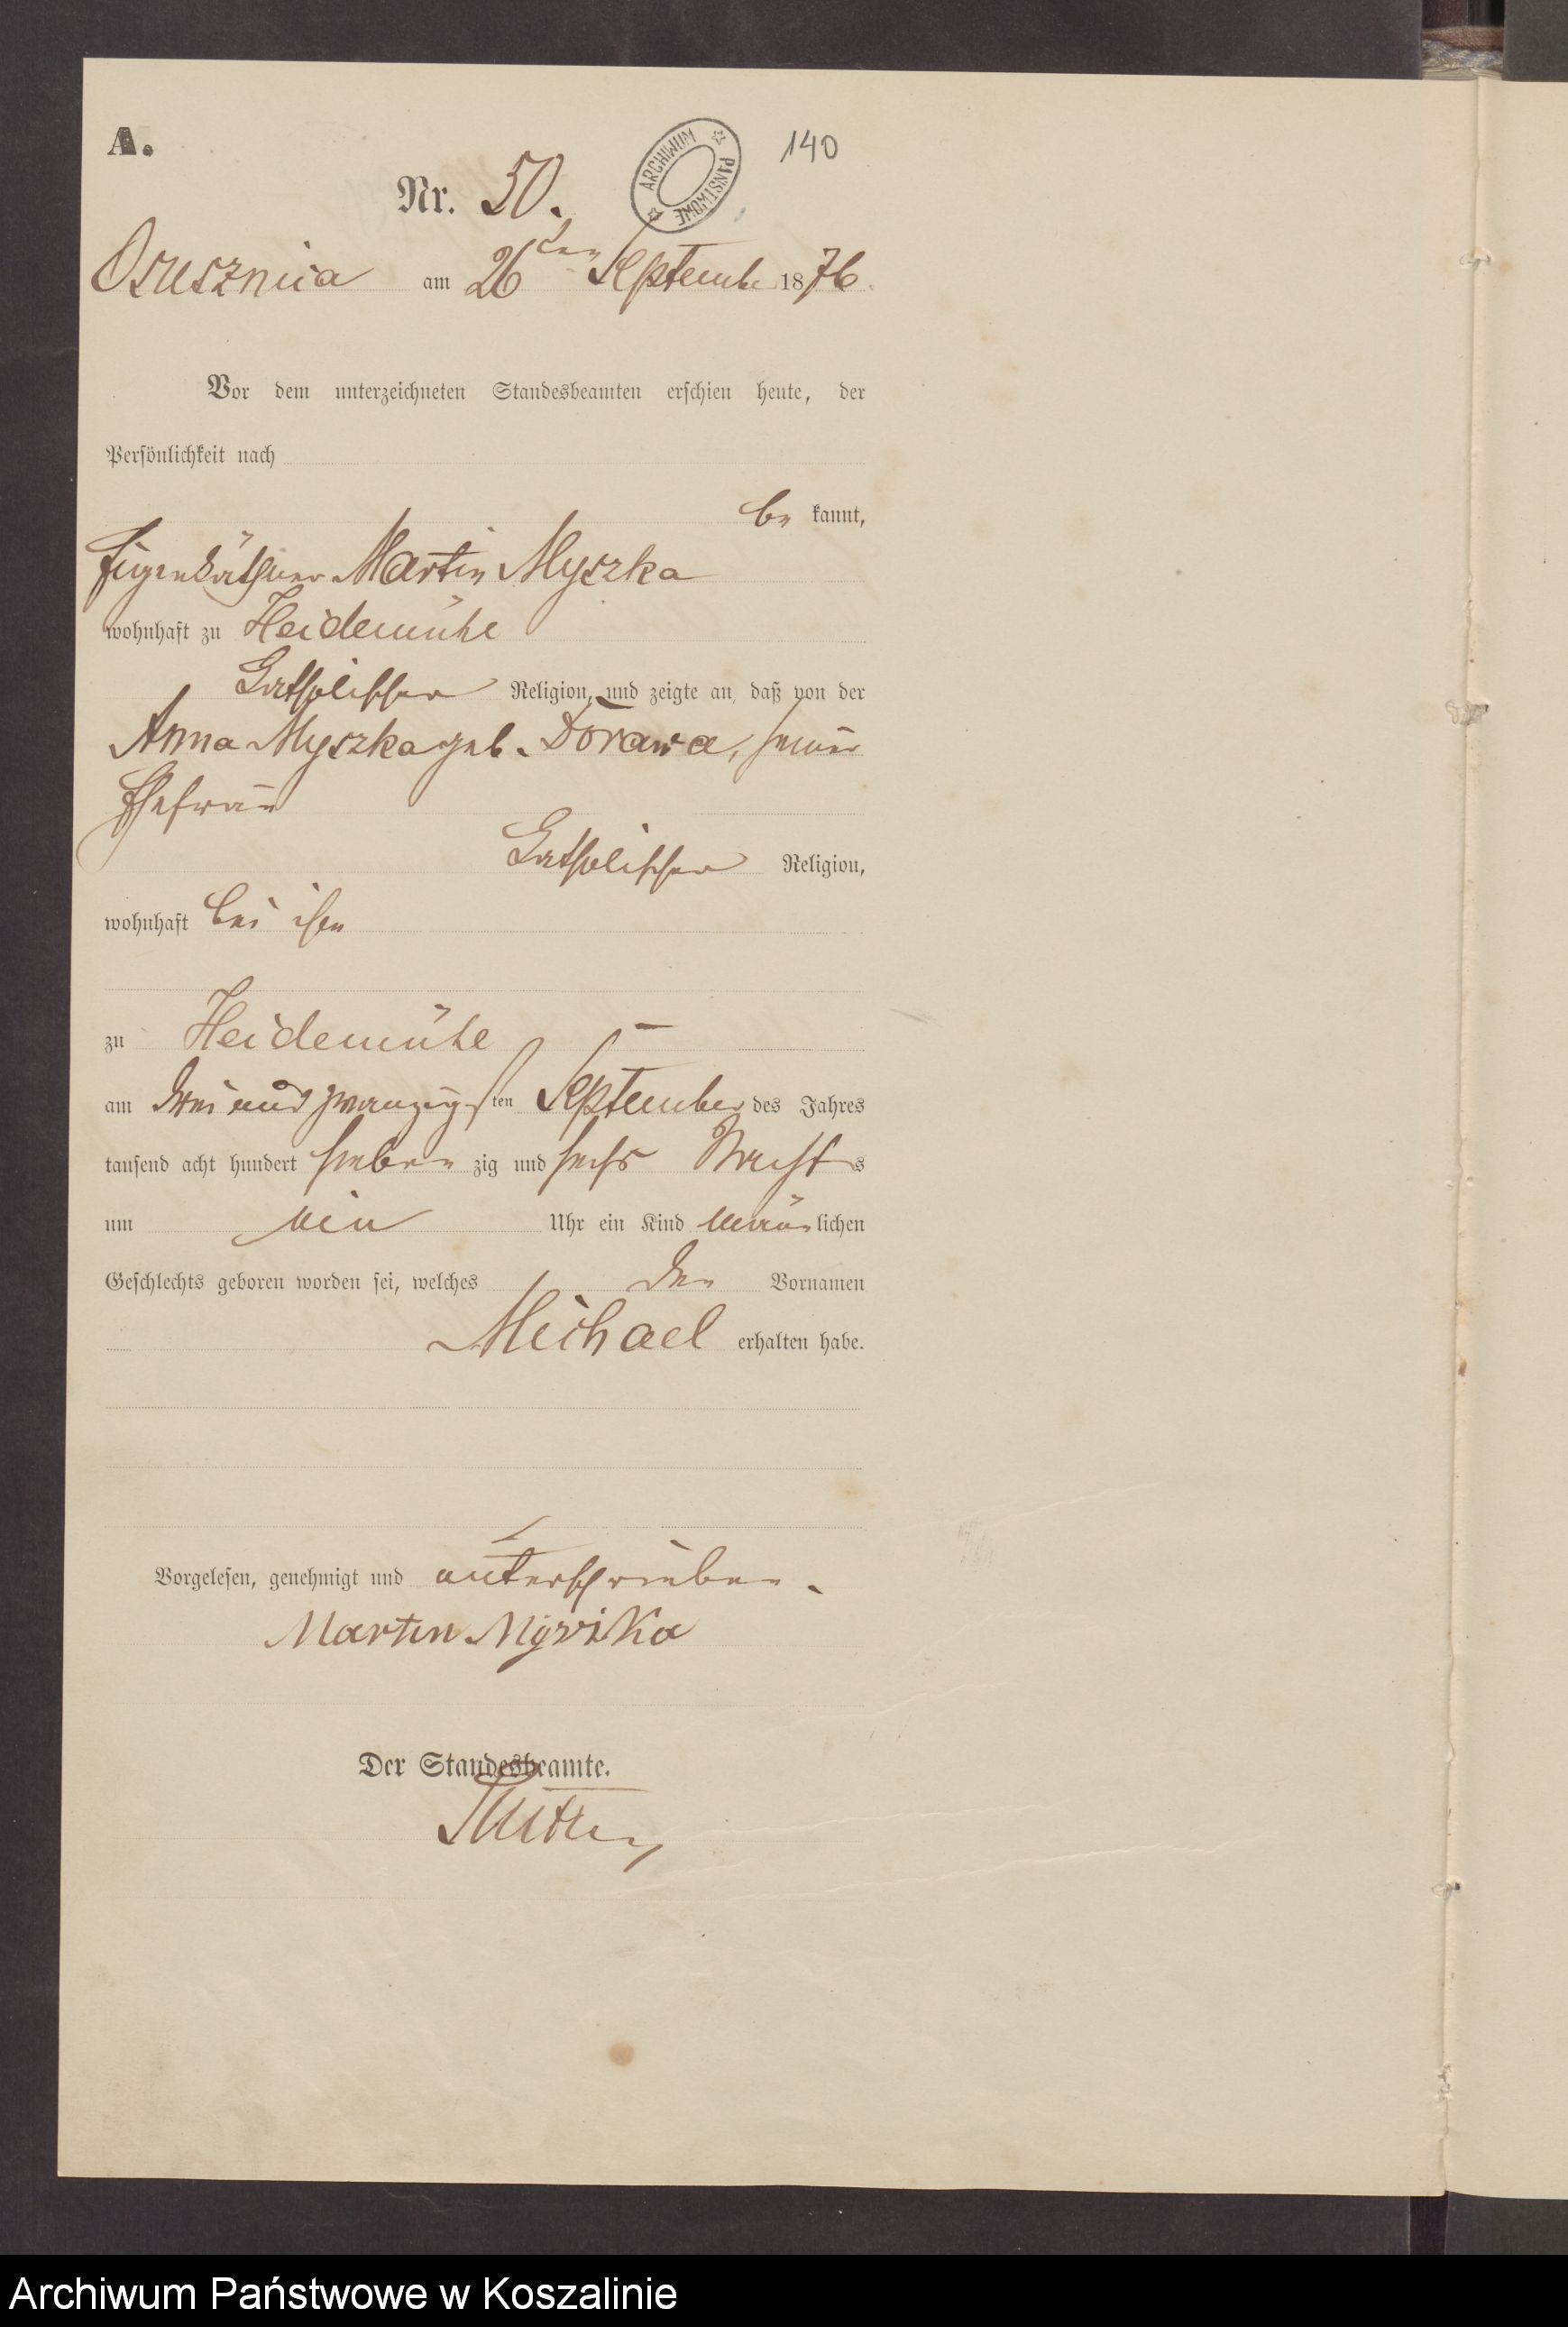 A.
140
ARCHIWUM PAŃSTWOWE
Nr. 50.
Osusznica am 26ten September 1876.
Vor dem unterzeichneten Standesbeamten erschien heute, der
Persönlichkeit nach
be kannt,
Eigenkäthner Martin Myszka
wohnhaft zu Heidemühl
katholischer Religion, und zeigte an, daß von der
Anna Myszka geb. Dorawa, seiner
Ehefrau
katholischer Religion,
wohnhaft bei ihm
zu Heidemühl
am drei und zwanzigsten September des Jahres
tausend acht hundert sieben zig und sechs Nachts
um ein Uhr ein Kind mänlichen
Geschlechts geboren worden sei, welches den Vornamen
Michael erhalten habe.
Vorgelesen, genehmigt und unterschrieben.
Martin Myszka
Der Standesbeamte.
Archiwum Państwowe w Koszalinie